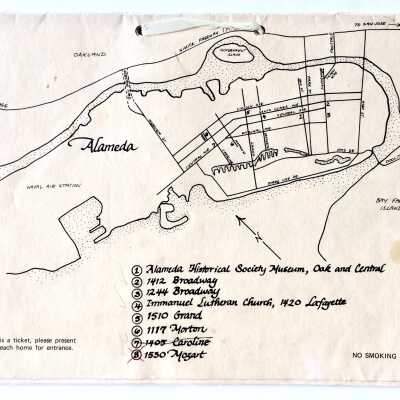 TO SAN JOSE
OAKLAND
NIMITZ FREEWAY
GOVERNMENT ISLAND
Alameda
NAVAL AIR STATION
BAY FA
ISLAN
① Alameda Historical Society Museum, Oak and Central
② 1412 Broadway
③ 1244 Broadway
④ Immanuel Lutheran Church, 1420 Lafayette
⑤ 1510 Grand
⑥ 1117 Morton
⑦ 1405 Caroline
⑧ 1530 Mozart
is a ticket, please present
each home for entrance.
NO SMOKING